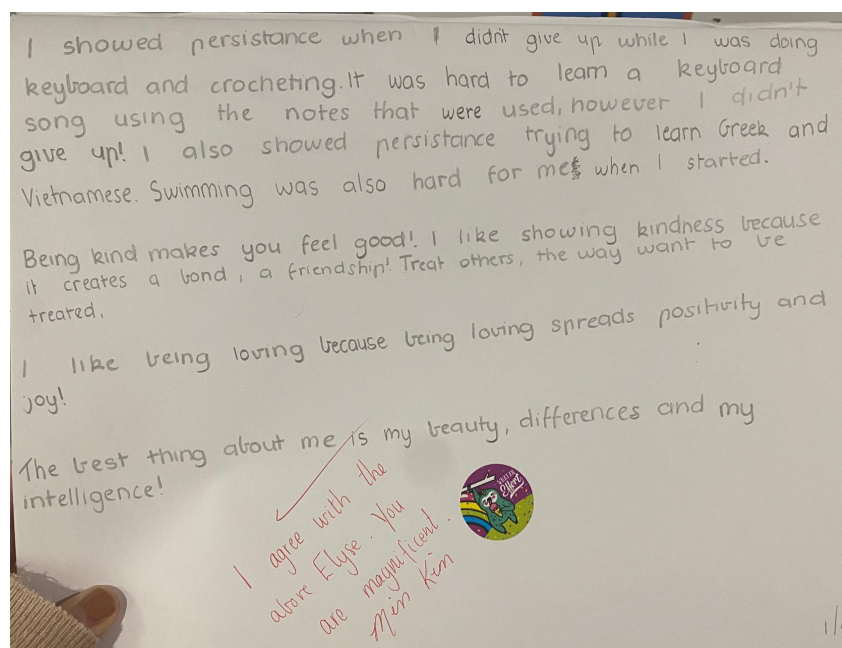 I showed persistance when I didn't give up while I was doing
keyboard and crocheting. It was hard to learn a keyboard
song using the notes that were used, however I didn't
give up! I also showed persistance trying to learn Greek and
Vietnamese. Swimming was also hard for me when I started.
Being kind makes you feel good! I like showing kindness because
it creates a bond, a friendship! Treat others, the way want to be
treated.
I like being loving because being loving spreads positivity and
joy!
The best thing about me is my beauty, differences and my
intelligence!
I agree with the
above Elyse. You
are magnificent.
Miss Kim
Effort